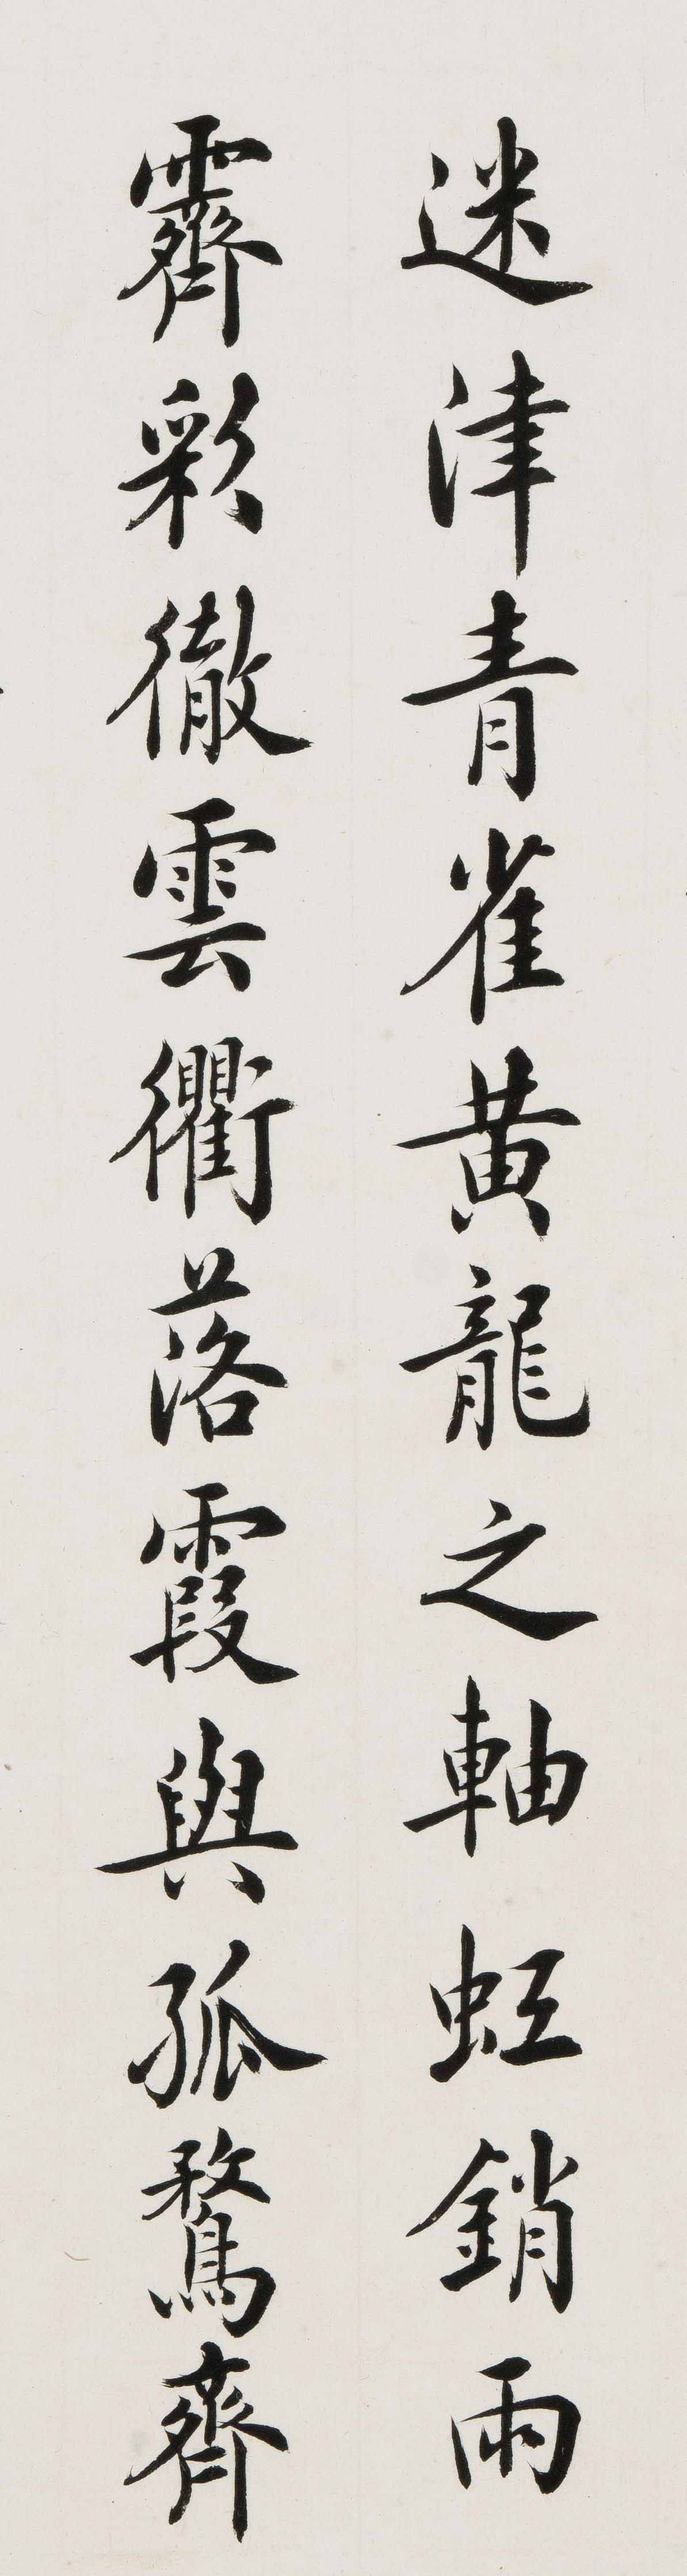 迷津青雀黄龍之軸虹銷雨
霽彩徹雲衢落霞與孤鶩齊